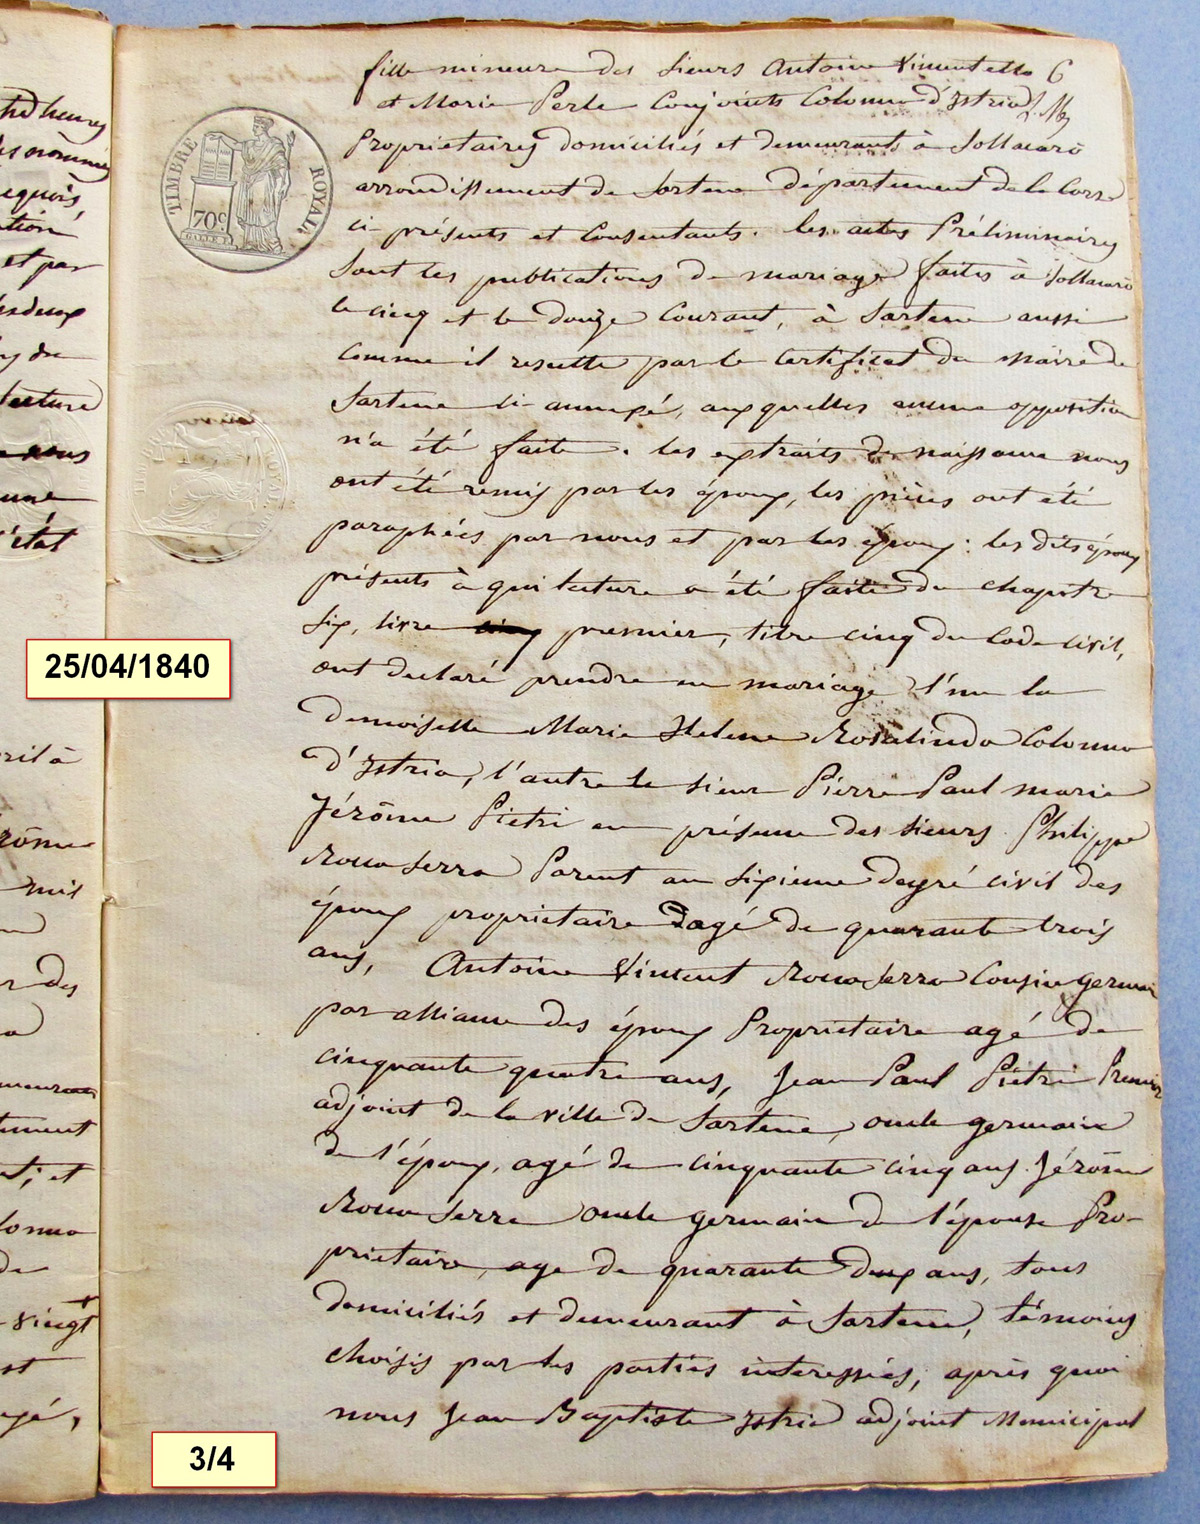 fille mineure des sieurs Antoine Vincentello 6
et Marie Perle Conjoints Colonna d'Istria
Propriétaires domiciliés et demeurants à Sollacarò
arrondissement de Sartene département de la Corse
ci-présents et Consentants. les actes Préliminaires
sont les publications de mariage faites à Sollacarò
le cinq et le douze Courant, à Sartene aussi
comme il resulte par le Certificat du Maire de
Sartene ci-annexé, auxquelles aucune opposition
n'a été faite. les extraits de naissance nous
ont été remis par les époux, les pièces ont été
paraphées par nous et par les époux: les dits époux
présents à qui lecture a été faite du chapitre
six, livre cinq premier, titre cinq du Code civil,
ont declaré prendre en mariage l'un la
demoiselle Marie Helene Rosalinda Colonna
d'Istria, l'autre le sieur Pierre Paul marie
Jérôme Pietri en présence des sieurs Philippe
Rocca Serra Parent au sixieme degré civil des
époux propriétaire agé de quarante trois
ans, Antoine Vincent Rocca Serra Cousin germain
par alliance des époux Propriétaire agé de
cinquante quatre ans, Jean Paul Pietri Premier
adjoint de la ville de Sartene, oncle germain
de l'époux, agé de cinquante cinq ans. Jérôme
Rocca Serra oncle germain de l'épouse Pro-
priétaire, age de quarante deux ans, tous
domiciliés et demeurant à Sartene, témoins
choisis par les parties interessées, après quoi
nous Jean Baptiste Istria adjoint Municipal
TIMBRE ROYAL
70c
25/04/1840
3/4